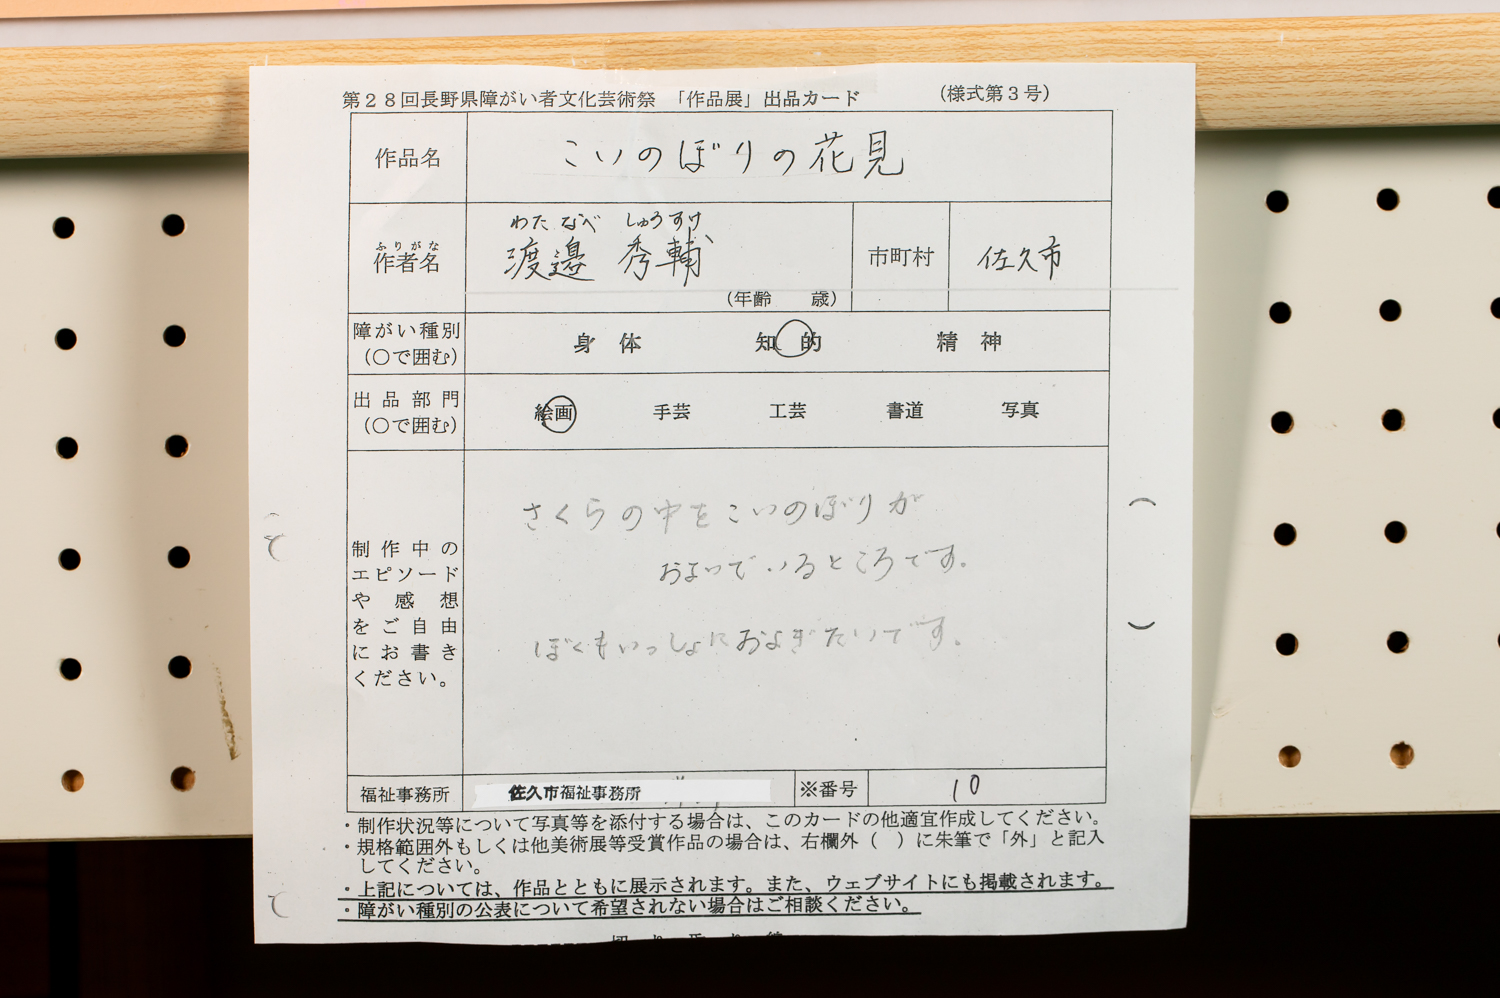 第28回長野県障がい者文化芸術祭 「作品展」出品カード (様式第3号)
作品名 こいのぼりの花見
わたなべ しゅうすけ
ふりがな
作者名 渡邉 秀輔 市町村 佐久市
(年齢 歳)
障がい種別
(○で囲む) 身体 知的 精神
出品部門
(○で囲む) 絵画 手芸 工芸 書道 写真
制作中の
エピソード
や感想
をご自由
にお書き
ください。
さくらの中をこいのぼりが
およいでいるところです。
ぼくもいっしょにおよぎたいです。
福祉事務所 佐久市福祉事務所 ※番号 10
・制作状況等について写真等を添付する場合は、このカードの他適宜作成してください。
・規格範囲外もしくは他美術展等受賞作品の場合は、右欄外( )に朱筆で「外」と記入
してください。
・上記については、作品とともに展示されます。また、ウェブサイトにも掲載されます。
・障がい種別の公表について希望されない場合はご相談ください。